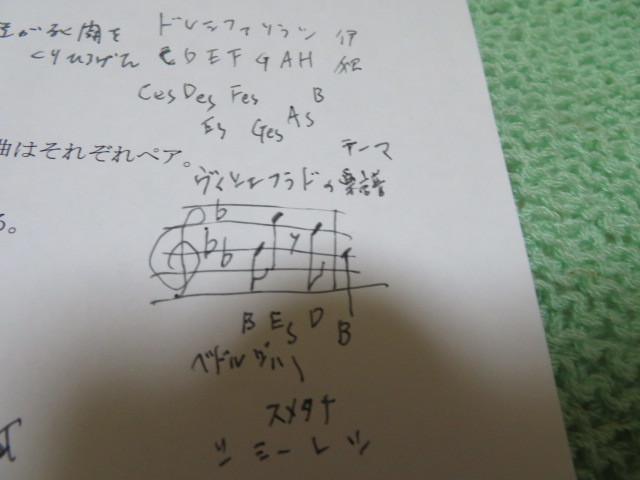 ドレミファソラシ
C D E F G A H
Ces Des Fes B
Es Ges As
曲はそれぞれペア。
テーマ
ヴィシェフラドの楽譜
る。
B Es D B
ベドルジハ
スメタナ
シ ミー レ シ